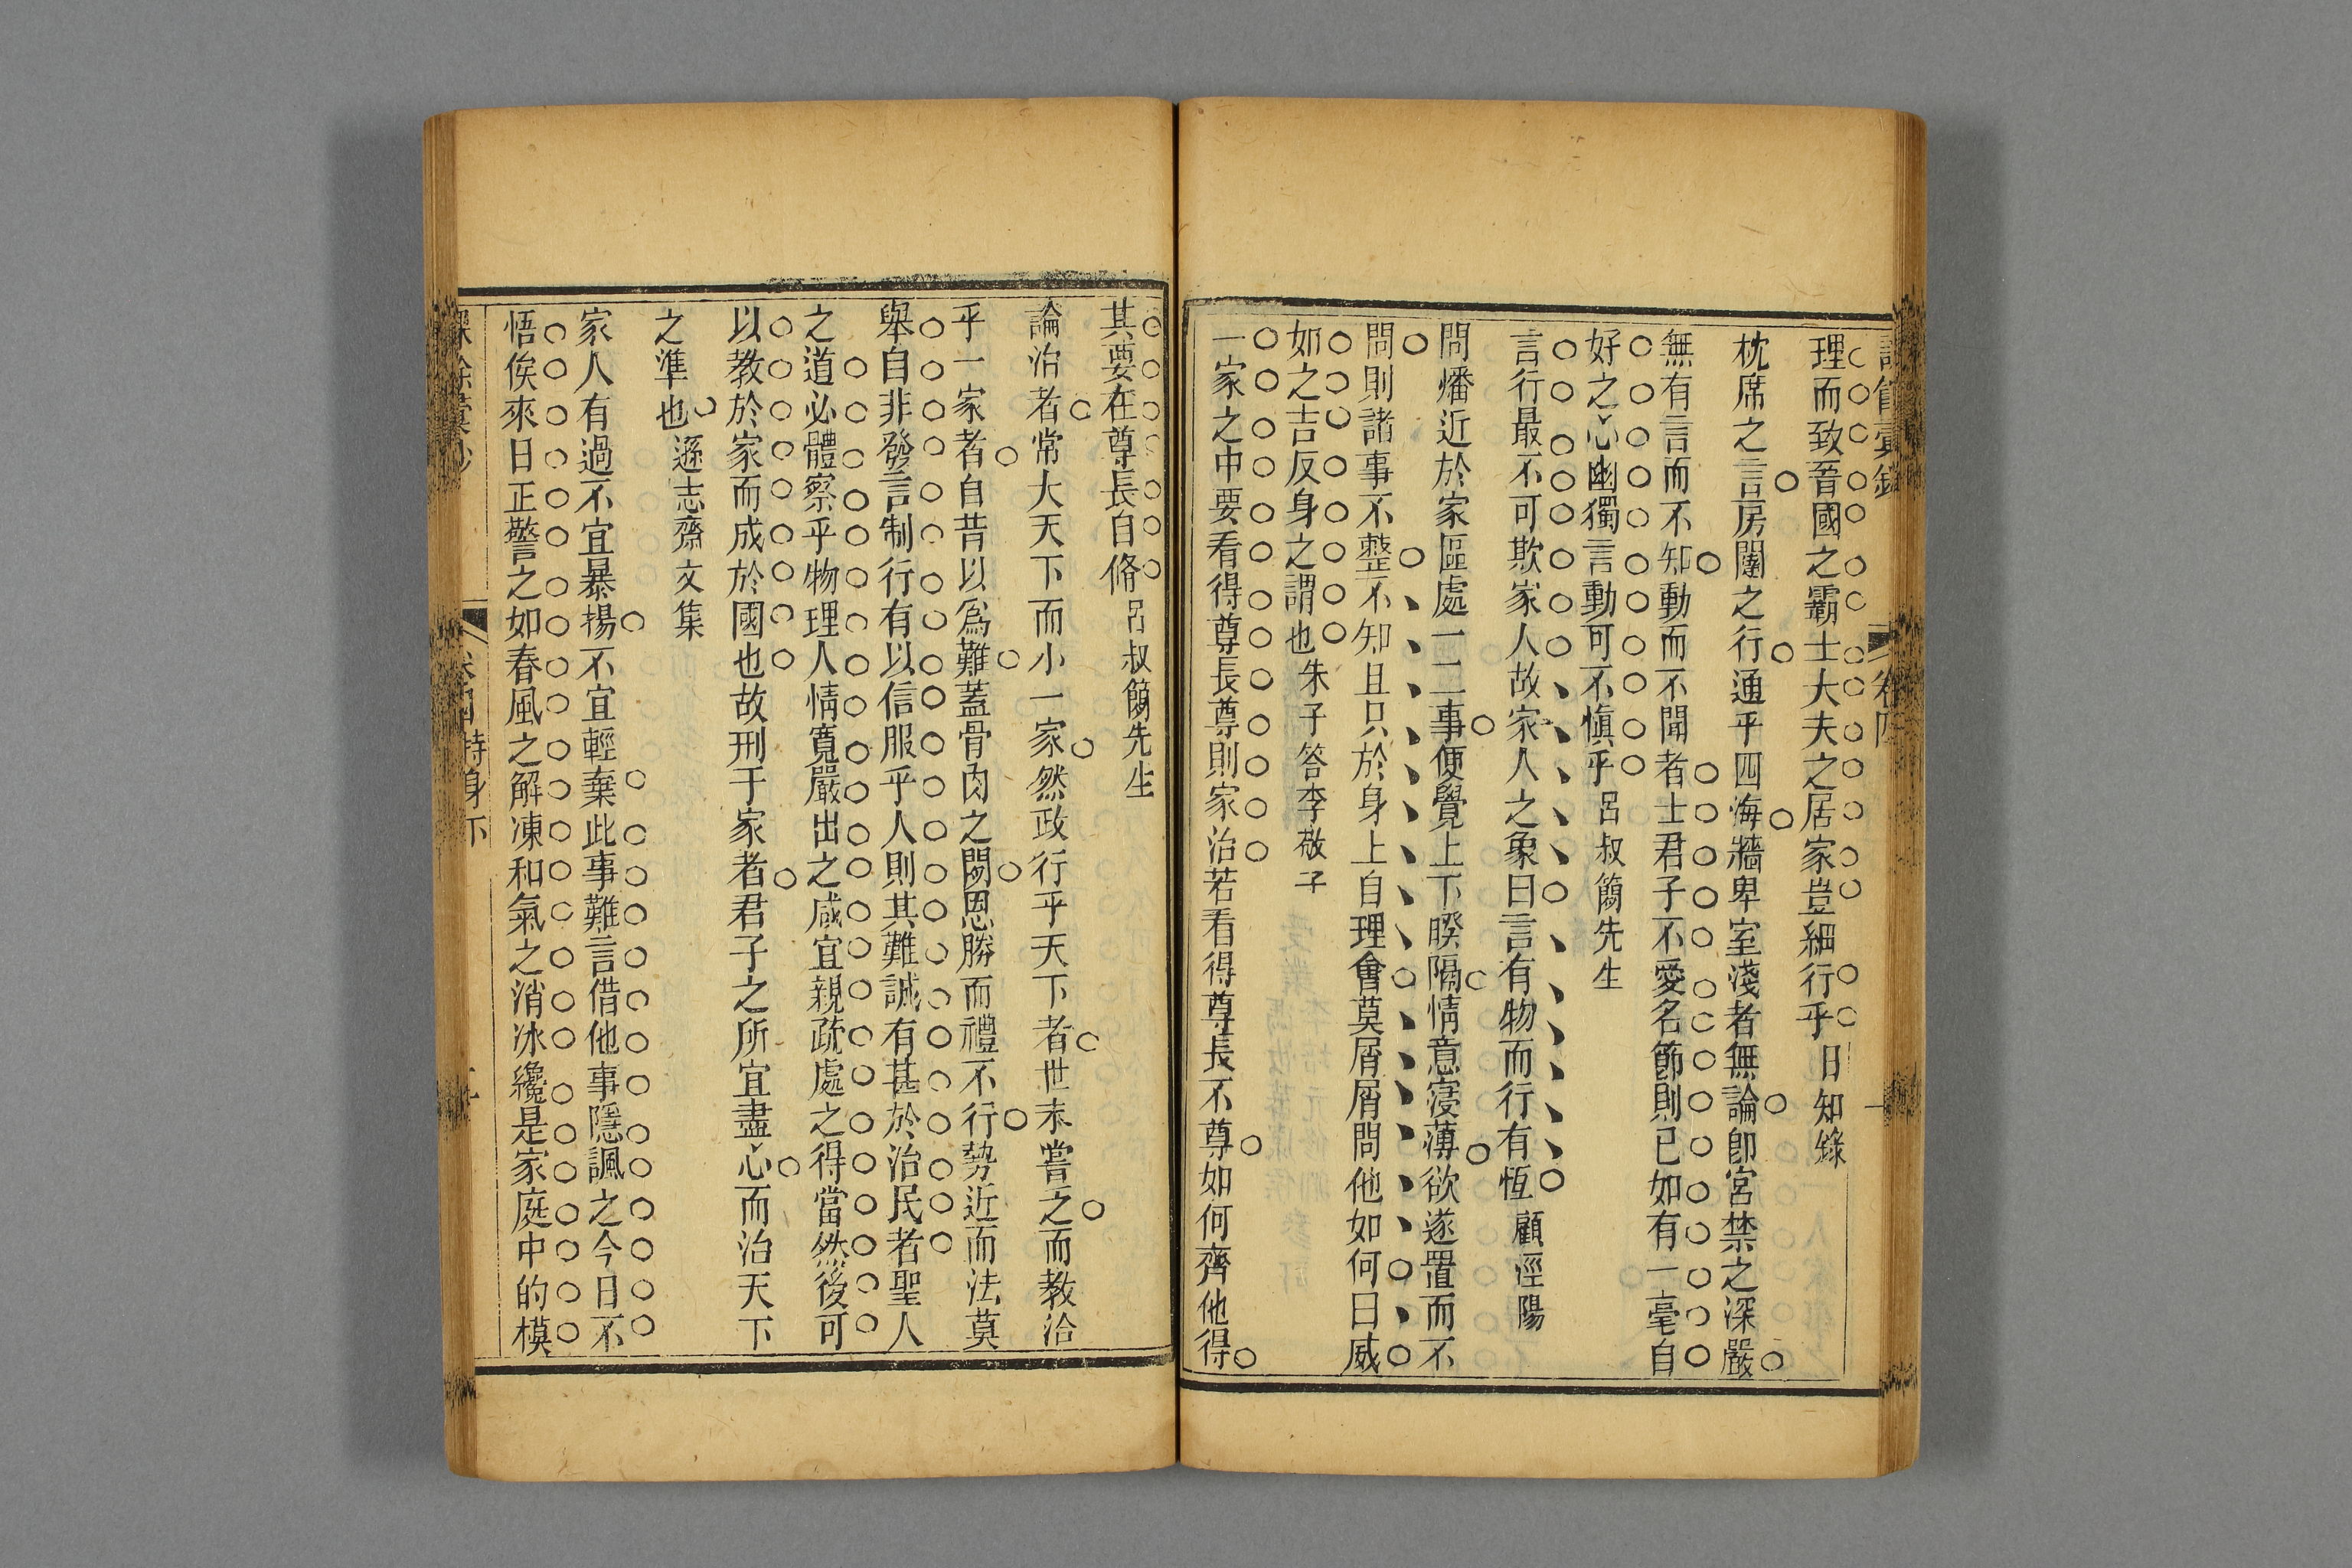 理而致晉國之霸士大夫之居家豈細行乎日知錄
枕席之言房闥之行通乎四海牆卑室淺者無論卽宮禁之深嚴
無有言而不知動而不聞者士君子不愛名節則已如有一毫自
好之心幽獨言動可不愼乎呂叔簡先生
言行最不可欺家人故家人之象曰言有物而行有恆顧涇陽
問燔近於家區處一二事便覺上下暌隔情意寖薄欲遂置而不
問則諸事不整不知且只於身上自理會莫屑屑問他如何曰威
如之吉反身之謂也朱子答李敬子
一家之中要看得尊長尊則家治若看得尊長不尊如何齊他得
其要在尊長自脩呂叔簡先生
論治者常大天下而小一家然政行乎天下者世未嘗乏而教洽
乎一家者自昔以爲難蓋骨肉之閒恩勝而禮不行勢近而法莫
舉自非發言制行有以信服乎人則其難誠有甚於治民者聖人
之道必體察乎物理人情寬嚴出之咸宜親疏處之得當然後可
以教於家而成於國也故刑于家者君子之所宜盡心而治天下
之準也遜志齋文集
家人有過不宜暴揚不宜輕棄此事難言借他事隱諷之今日不
悟俟來日正警之如春風之解凍和氣之消冰纔是家庭中的模
持身下